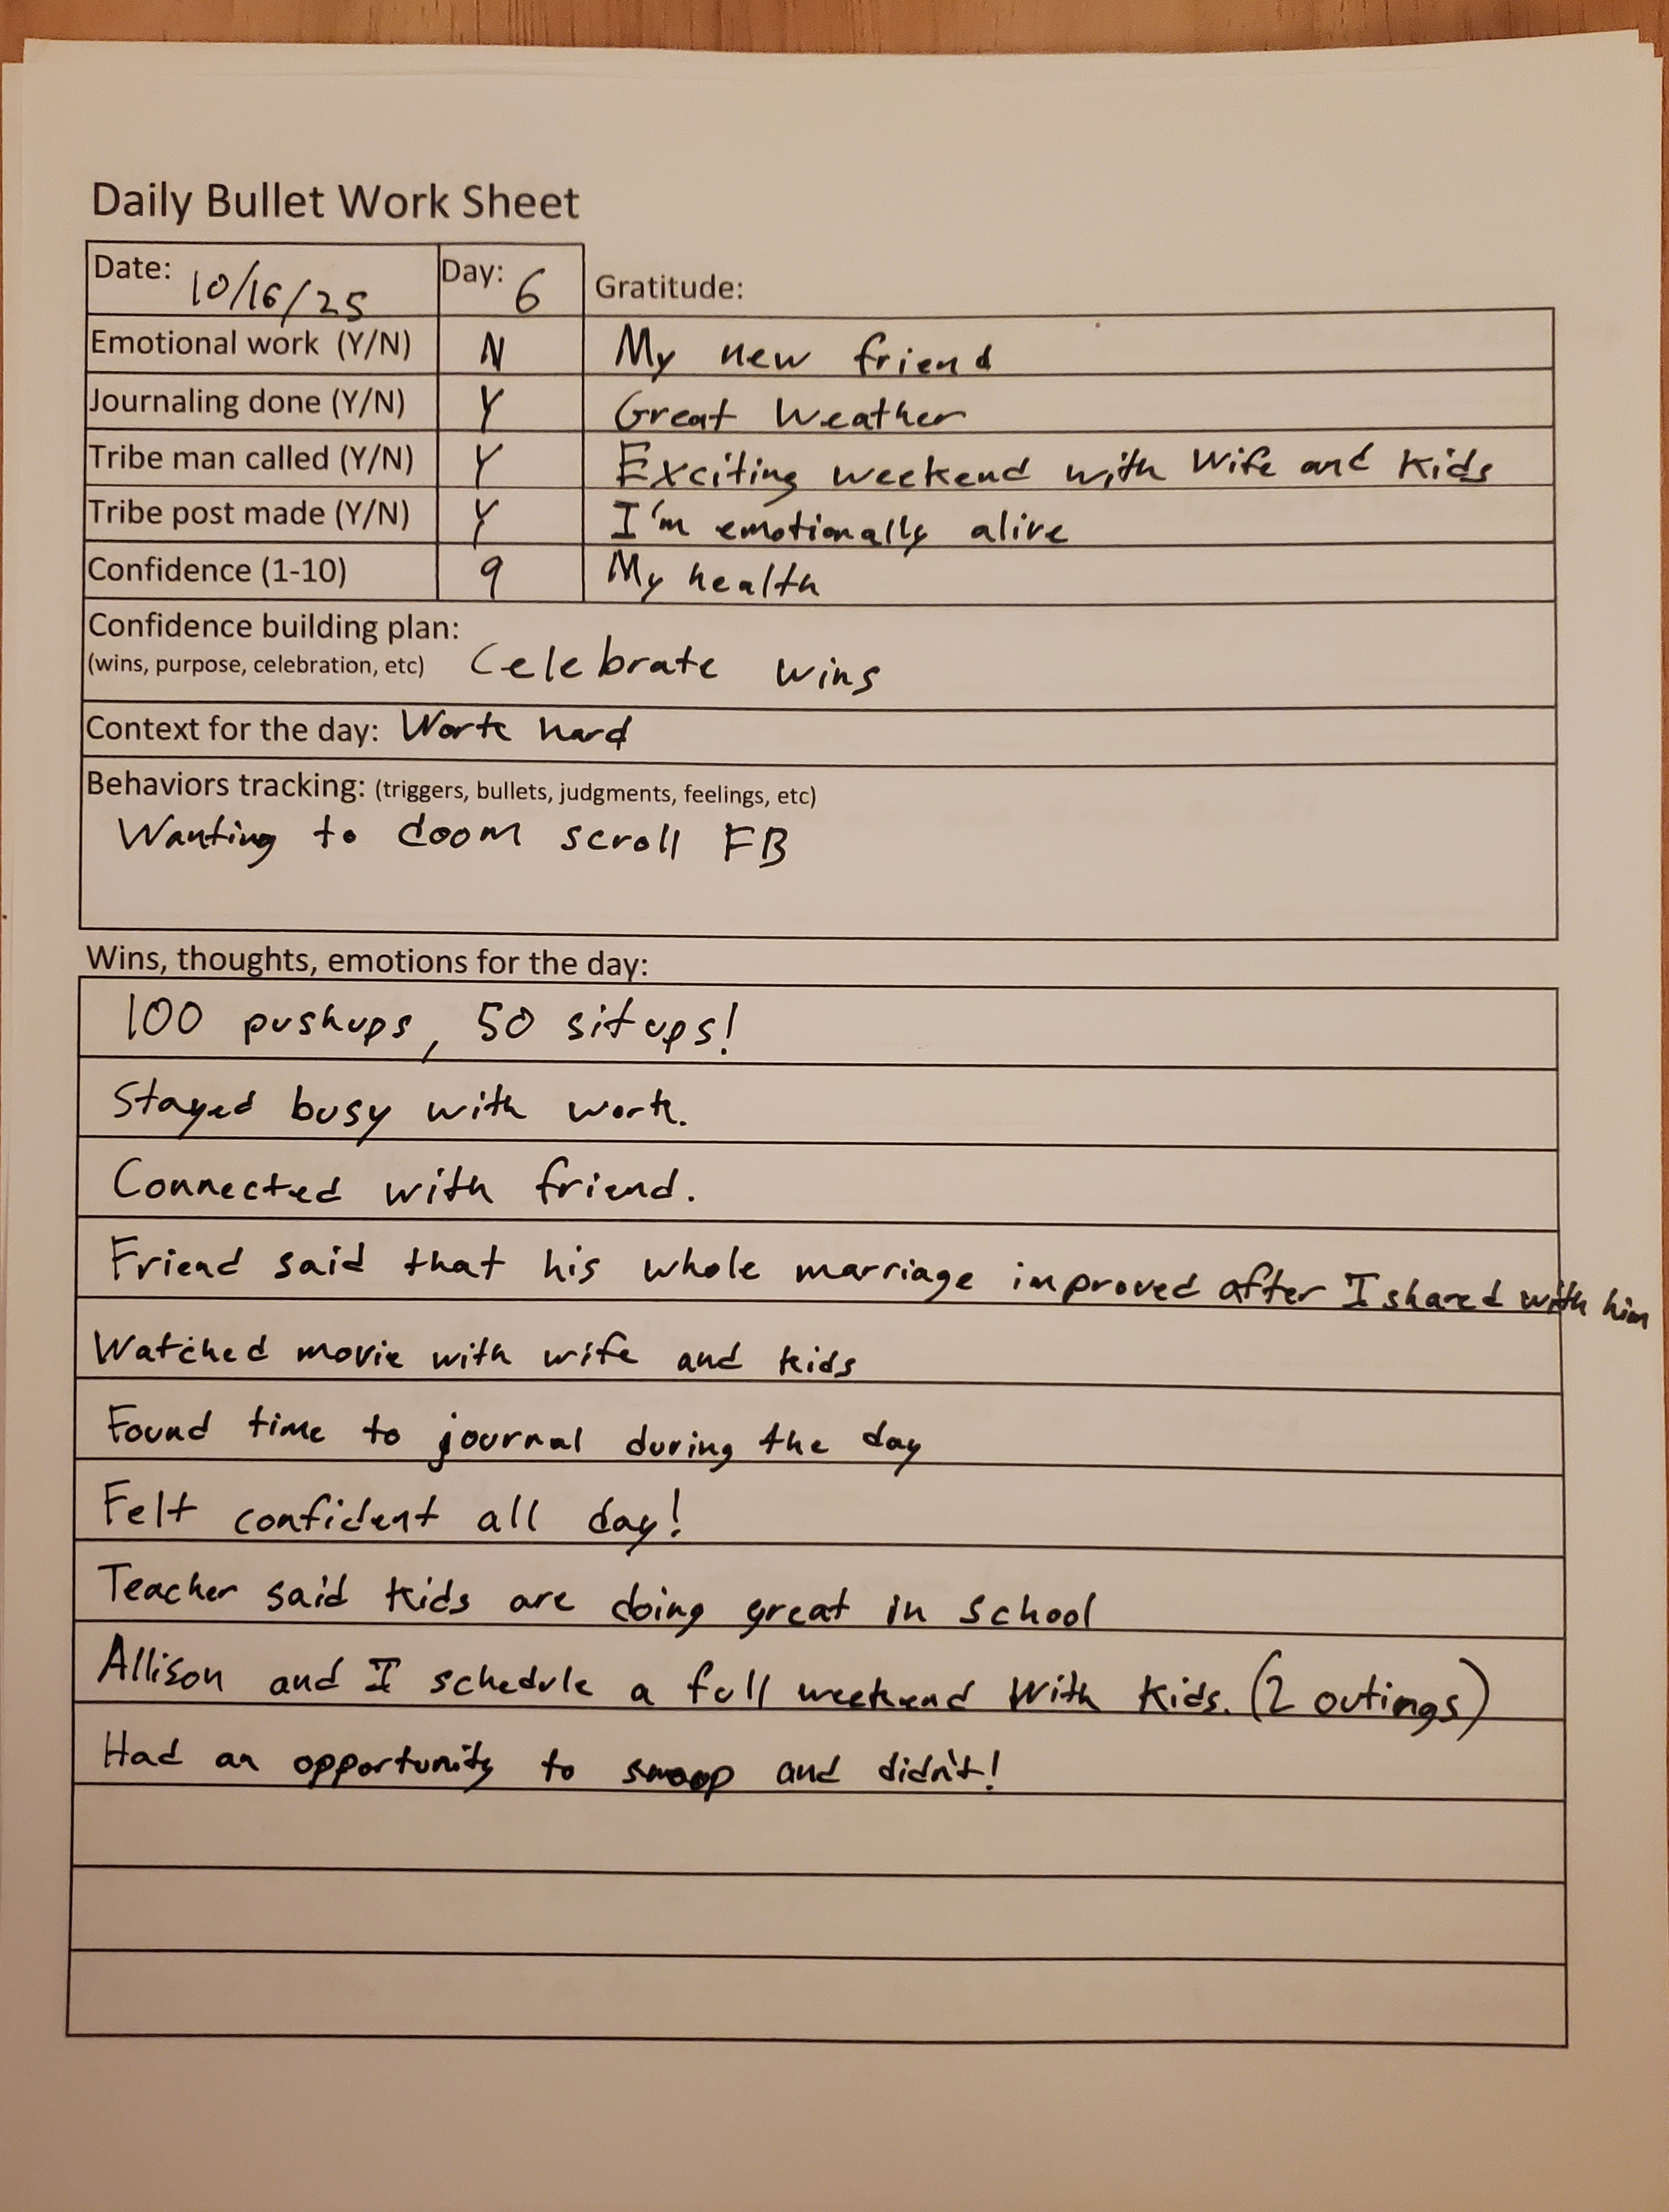 Daily Bullet Work Sheet
Date: 10/16/25 Day: 6 Gratitude:
Emotional work (Y/N) N My new friend
Journaling done (Y/N) Y Great Weather
Tribe man called (Y/N) Y Exciting weekend with Wife and Kids
Tribe post made (Y/N) Y I'm emotionally alive
Confidence (1-10) 9 My health
Confidence building plan:
(wins, purpose, celebration, etc) Celebrate wins
Context for the day: Work hard
Behaviors tracking: (triggers, bullets, judgments, feelings, etc)
Wanting to doom scroll FB
Wins, thoughts, emotions for the day:
100 pushups, 50 situps!
Stayed busy with work.
Connected with friend.
Friend said that his whole marriage improved after I shared with him
Watched movie with wife and kids
Found time to journal during the day
Felt confident all day!
Teacher said kids are doing great in school
Allison and I schedule a full weekend With Kids. (2 outings)
Had an opportunity to and didn't!